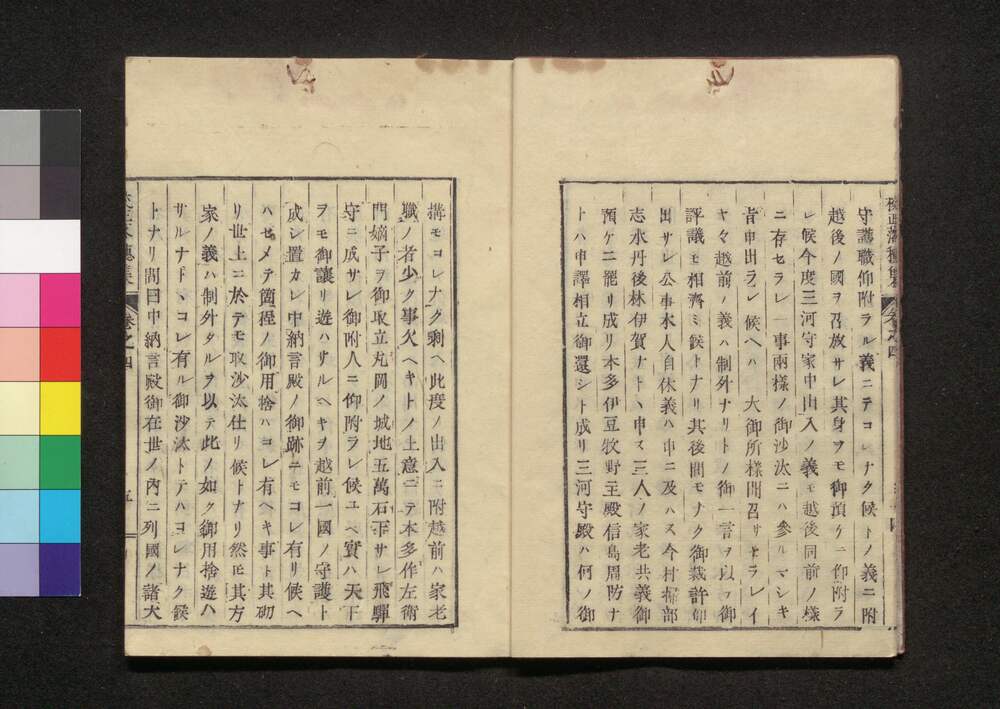 守護職仰附ラル義ニテコレナク候トノ義ニ附
越後ノ國ヲ召放サレ其身ヲモ御預ケニ仰附ラ
レ候今度三河守家中出入ノ義モ越後同前ノ樣
ニ存セラレ一事兩樣ノ御沙汰ニハ參ルマシキ
旨申出ラレ候ヘハ 大御所樣聞召サセラレイ
ヤ々越前ノ義ハ制外ナリトノ御一言ヲ以テ御
評議モ相濟ミ候トナリ其後間モナク御裁許仰
出サレ公事本人自休義ハ申ニ及ハス今村掃部
志水丹後林伊賀ナト丶申ス三人ノ家老共義御
預ケニ罷リ成リ本多伊豆牧野主殿信島周防ナ
トハ申譯相立御還シト成リ三河守殿ハ何ノ御
校正落穗集 卷之四
搆モコレナク剩ヘ此度ノ出入ニ附越前ハ家老
職ノ者少ク事欠ヘキトノ上意ニテ本多作左衛
門嫡子ヲ御取立丸岡ノ城地五萬石下サレ飛驒
守ニ成サレ御附人ニ仰附ラレ候ユヘ實ハ天下
ヲモ御讓リ遊ハサルヘキヲ越前一國ノ守護ト
成シ置カレ中納言殿ノ御跡ニモコレ有リ候ヘ
ハセメテ箇程ノ御用捨ハコレ有ヘキ事ト其砌
リ世上ニ於テモ取沙汰仕リ候トナリ然𪜈其方
家ノ義ハ制外タルヲ以テ此ノ如ク御用捨遊ハ
サルナト丶コレ有ル御沙汰トテハコレナク候
トナリ問曰中納言殿御在世ノ內ニ列國ノ諸大
卷之四 五